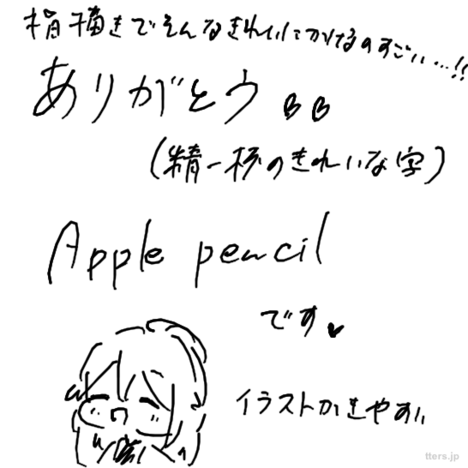 指描きでそんなきれいにかけるのすごい…!!
ありがとう
(精一杯のきれいな字)
Apple pencil
です
イラストかきやすい
tters.jp